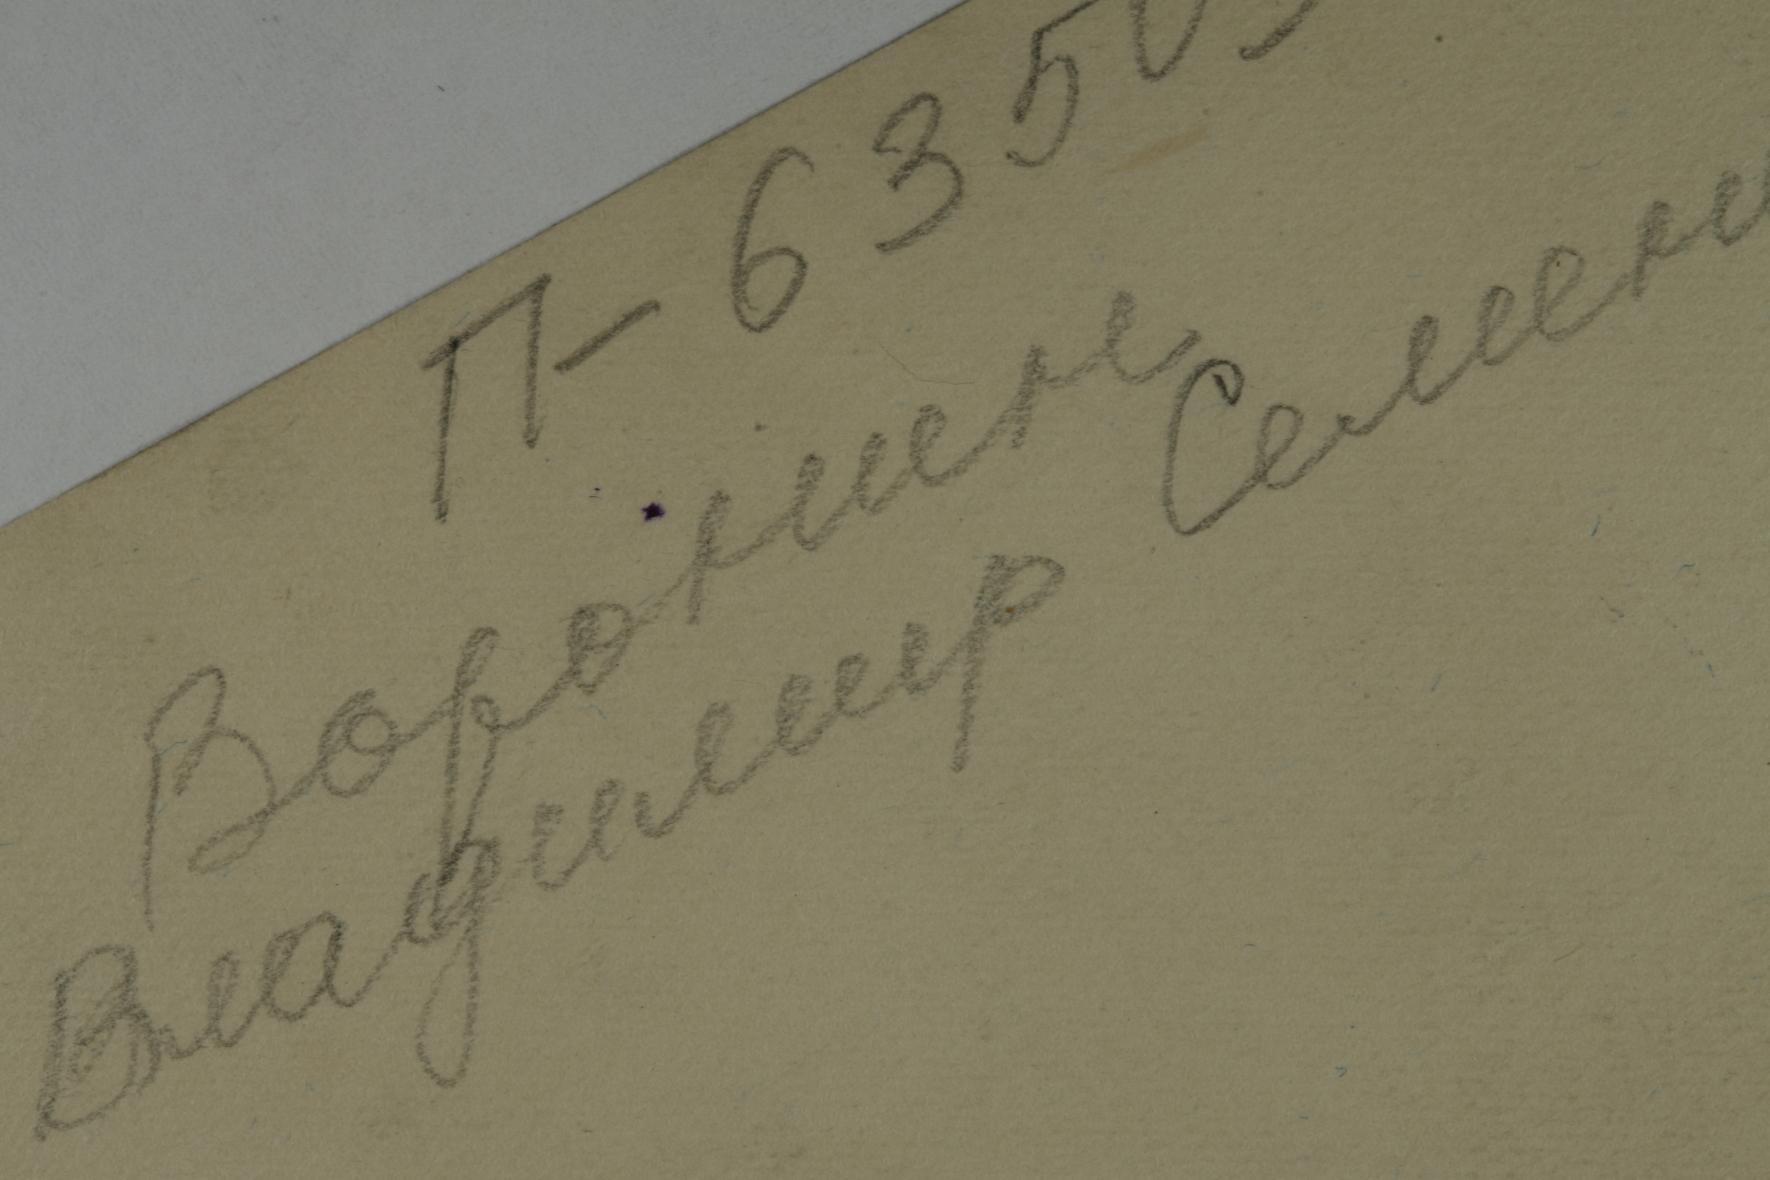 П-6350
Воронин
Владимир Семен